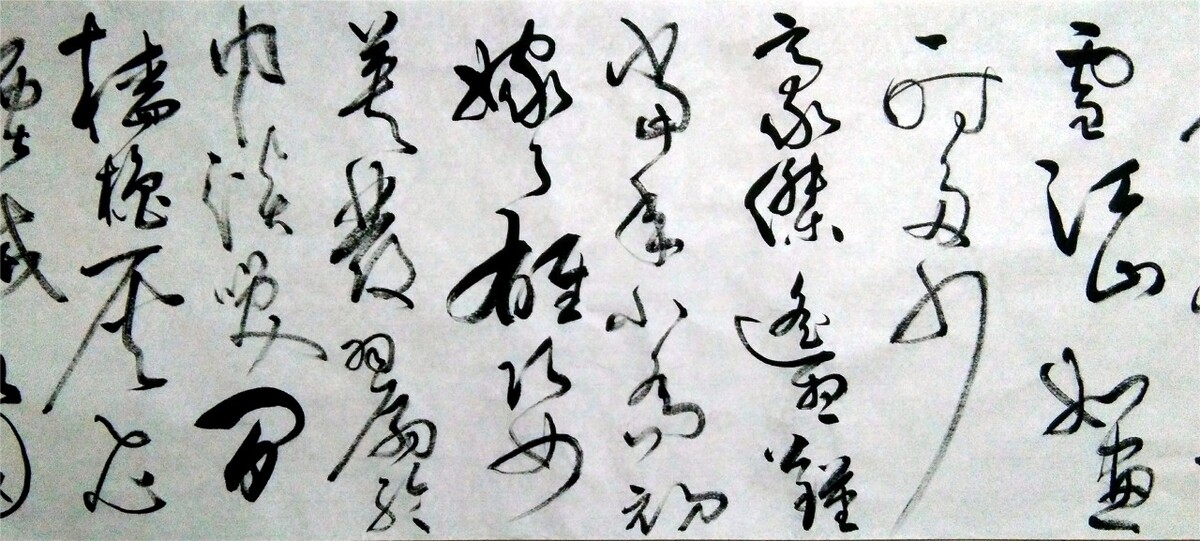 雪江山如畫
一時多少
豪傑遙想公瑾
當年小喬初
嫁了雄姿
英發羽扇綸
巾談笑間
檣櫓灰飛